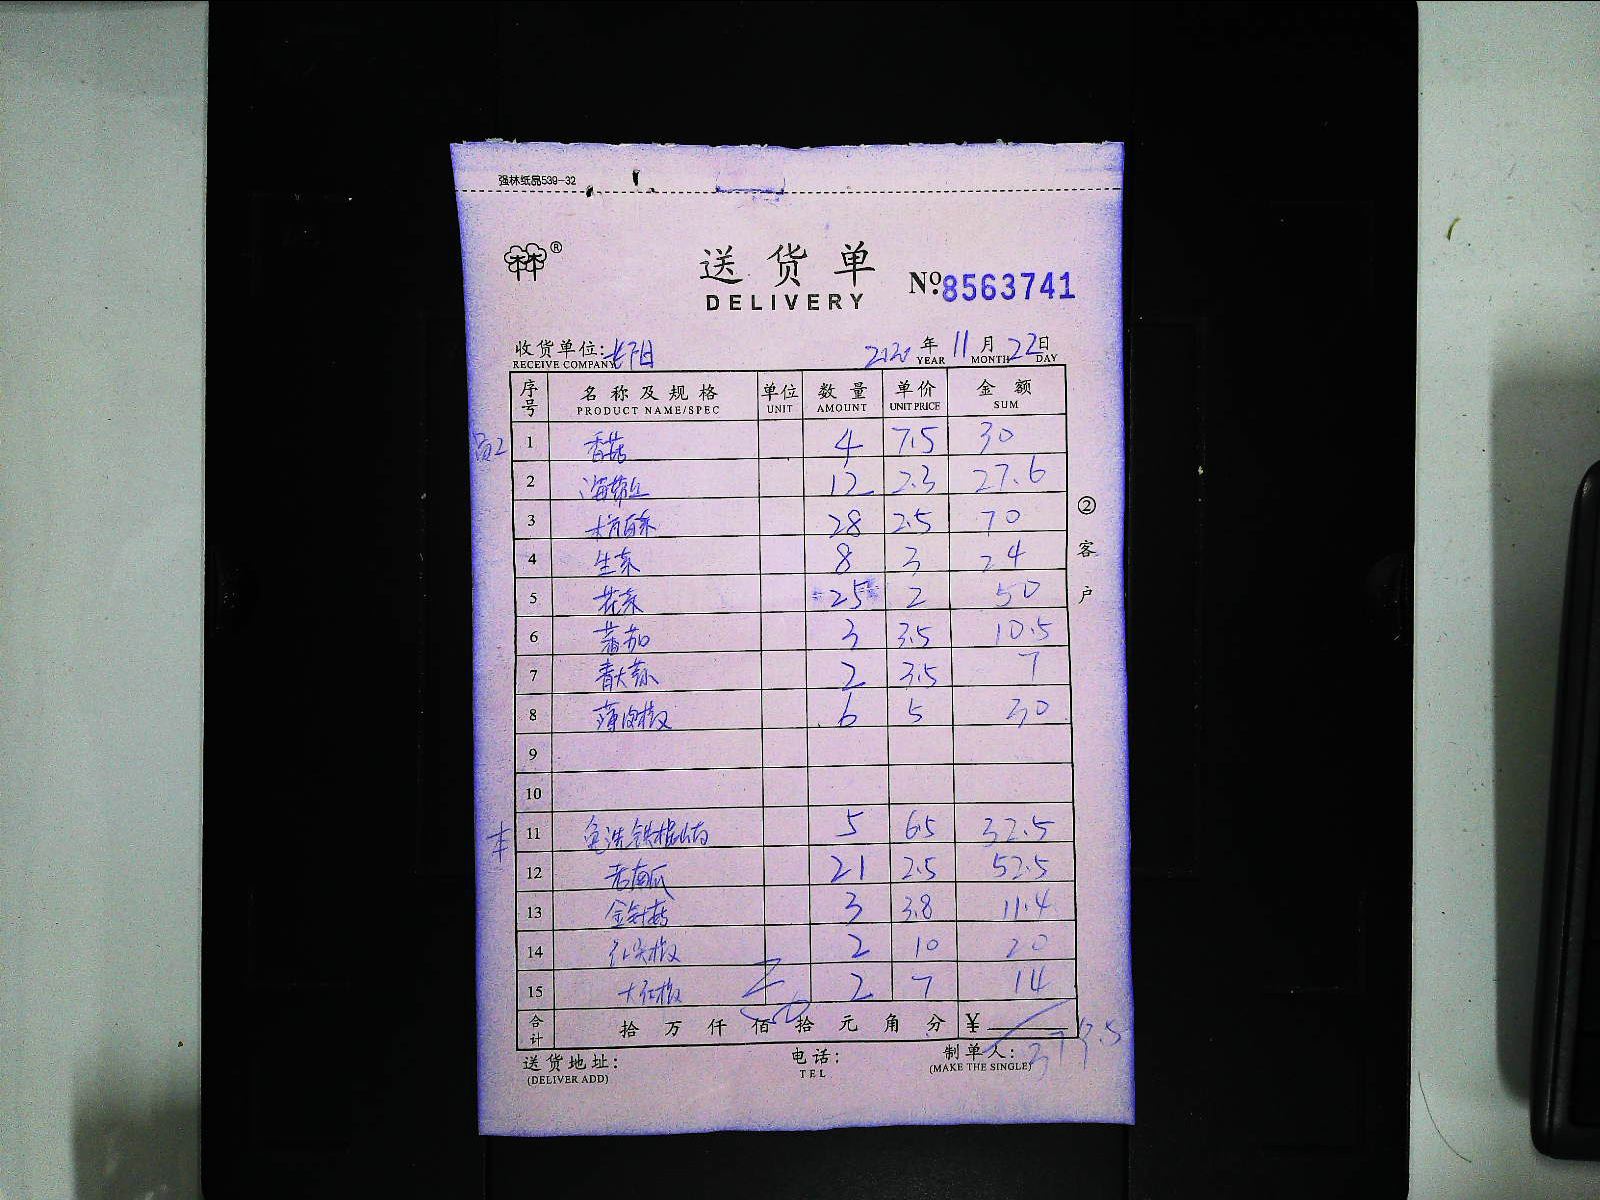 强林纸品539-32
林林®
送货单
DELIVERY
№8563741
收货单位:
RECEIVE COMPANY
2020年11月22日
YEAR MONTH DAY
序号 名称及规格 单位 数量 单价 金额
PRODUCT NAME/SPEC UNIT AMOUNT UNIT PRICE SUM
1 香菇 4 7.5 30
2 海带丝 12 2.3 27.6
3 杭白菜 28 2.5 70
4 生菜 8 3 24
5 花菜 25 2 50
6 蕃茄 3 3.5 10.5
7 青大蒜 2 3.5 7
8 薄皮椒 6 5 30
9
10
11 铁棍山药 5 6.5 32.5
12 老南瓜 21 2.5 52.5
13 金针菇 3 3.8 11.4
14 红尖椒 2 10 20
15 大红椒 2 7 14
合计 拾万仟佰拾元角分 ¥
379.5
②客户
送货地址:
(DELIVER ADD)
电话:
TEL
制单人:
(MAKE THE SINGLE)